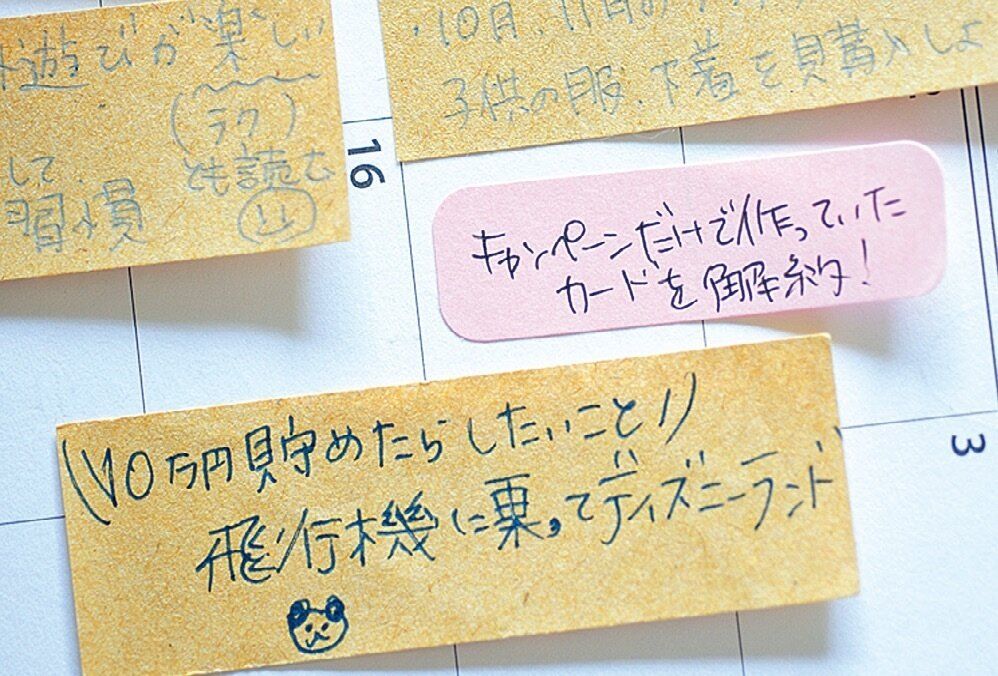 遊びが楽しい
(ラク)
して、とも読む
習慣 (いい)
・10月、11月の
子供の服、下着を購入しよ
16
キャンペーンだけで作っていた
カードを解約!
\\10万円貯めたらしたいこと//
飛行機に乗ってディズニーランド
3